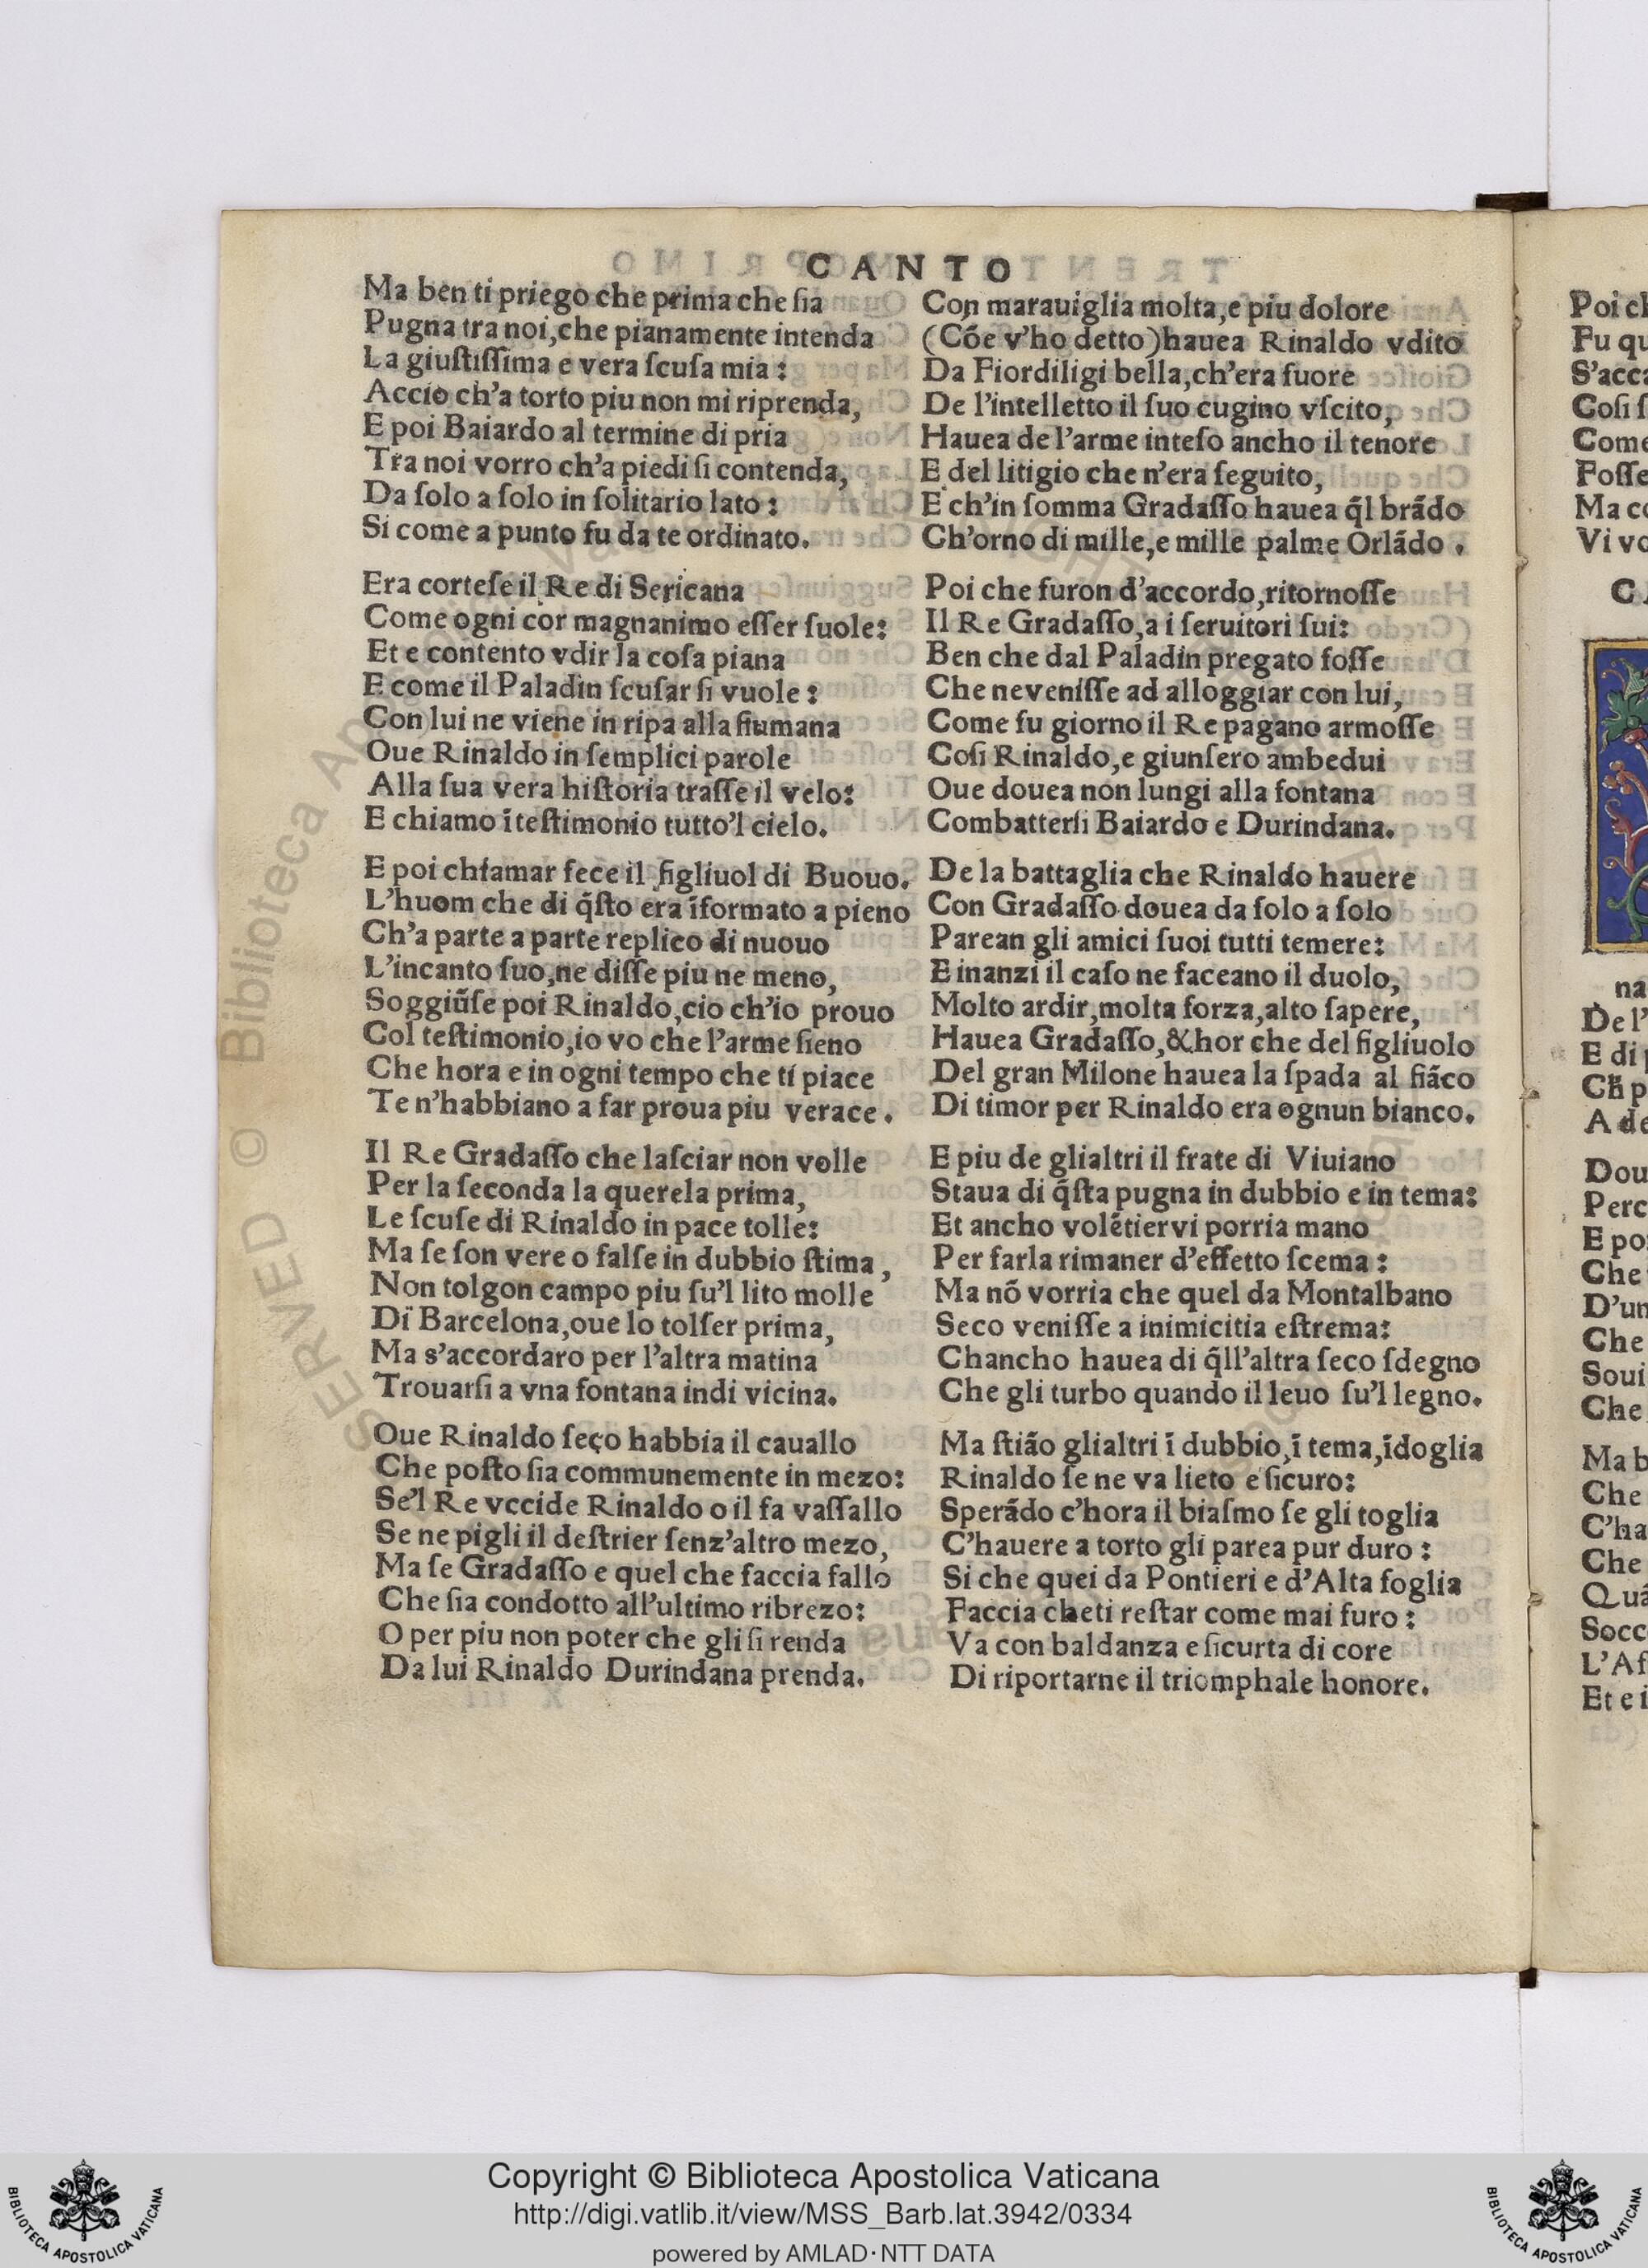 CANTO
Ma ben ti priego che prima che ſia
Pugna tra noi,che pianamente intenda
La giuſtiſſima e vera ſcuſa mia :
Accio ch'a torto piu non mi riprenda,
E poi Baiardo al termine di pria
Tra noi vorro ch'a piedi ſi contenda,
Da ſolo a ſolo in ſolitario lato :
Si come a punto fu da te ordinato.
Era corteſe il Re di Sericana
Come ogni cor magnanimo eſſer ſuole:
Et e contento vdir la coſa piana
E come il Paladin ſcuſar ſi vuole :
Con lui ne viene in ripa alla fiumana
Oue Rinaldo in ſemplici parole
Alla ſua vera hiſtoria traſſe il velo:
E chiamo ī teſtimonio tutto'l cielo.
E poi chiamar fece il figliuol di Buouo.
L'huom che di q̃ſto era īformato a pieno
Ch'a parte a parte replico di nuouo
L'incanto ſuo,ne diſſe piu ne meno,
Soggiũſe poi Rinaldo,cio ch'io prouo
Col teſtimonio,io vo che l'arme ſieno
Che hora e in ogni tempo che ti piace
Te n'habbiano a far proua piu verace.
Il Re Gradaſſo che laſciar non volle
Per la ſeconda la querela prima,
Le ſcuſe di Rinaldo in pace tolle:
Ma ſe ſon vere o falſe in dubbio ſtima,
Non tolgon campo piu ſu'l lito molle
Di Barcelona,oue lo tolſer prima,
Ma s'accordaro per l'altra matina
Trouarſi a vna fontana indi vicina.
Oue Rinaldo ſeço habbia il cauallo
Che poſto ſia communemente in mezo:
Se'l Re vccide Rinaldo o il fa vaſſallo
Se ne pigli il deſtrier ſenz'altro mezo,
Ma ſe Gradaſſo e quel che faccia fallo
Che ſia condotto all'ultimo ribrezo:
O per piu non poter che gli ſi renda
Da lui Rinaldo Durindana prenda.
Con marauiglia molta,e piu dolore
(Cõe v'ho detto)hauea Rinaldo vdito
Da Fiordiligi bella,ch'era fuore
De l'intelletto il ſuo cugino vſcito,
Hauea de l'arme inteſo ancho il tenore
E del litigio che n'era ſeguito,
E ch'in ſomma Gradaſſo hauea q̃l brãdo
Ch'orno di mille,e mille palme Orlãdo .
Poi che furon d'accordo,ritornoſſe
Il Re Gradaſſo,a i ſeruitori ſui:
Ben che dal Paladin pregato foſſe
Che neveniſſe ad alloggiar con lui,
Come fu giorno il Re pagano armoſſe
Coſi Rinaldo,e giunſero ambedui
Oue douea non lungi alla fontana
Combatterſi Baiardo e Durindana.
De la battaglia che Rinaldo hauere
Con Gradaſſo douea da ſolo a ſolo
Parean gli amici ſuoi tutti temere:
E inanzi il caſo ne faceano il duolo,
Molto ardir,molta forza,alto ſapere,
Hauea Gradaſſo,&hor che del figliuolo
Del gran Milone hauea la ſpada al fiãco
Di timor per Rinaldo era ognun bianco.
E piu de glialtri il frate di Viuiano
Staua di q̃ſta pugna in dubbio e in tema:
Et ancho volẽtier vi porria mano
Per farla rimaner d'effetto ſcema :
Ma nõ vorria che quel da Montalbano
Seco veniſſe a inimicitia eſtrema:
Chancho hauea di q̃ll'altra ſeco ſdegno
Che gli turbo quando il leuo ſu'l legno.
Ma ſtião glialtri ī dubbio,ī tema,īdoglia
Rinaldo ſe ne va lieto e ſicuro:
Sperãdo c'hora il biaſmo ſe gli toglia
C'hauere a torto gli parea pur duro :
Si che quei da Pontieri e d'Alta foglia
Faccia cheti reſtar come mai furo :
Va con baldanza e ſicurta di core
Di riportarne il triomphale honore.
Poi
Fu
S'acc
Coſi
Come
Foſſe
Ma
Vi
na
De l'
E di
A
Dou
Perc
E
Che
D'un
Che
Soui
Che
Ma
Che
C'ha
Che
Quã
Socc
L'Af
Et e
© Biblioteca
SERVED
Copyright © Biblioteca Apostolica Vaticana
http://digi.vatlib.it/view/MSS_Barb.lat.3942/0334
powered by AMLAD·NTT DATA
BIBLIOTECA APOSTOLICA VATICANA
BIBLIOTECA APOSTOLICA VATICANA